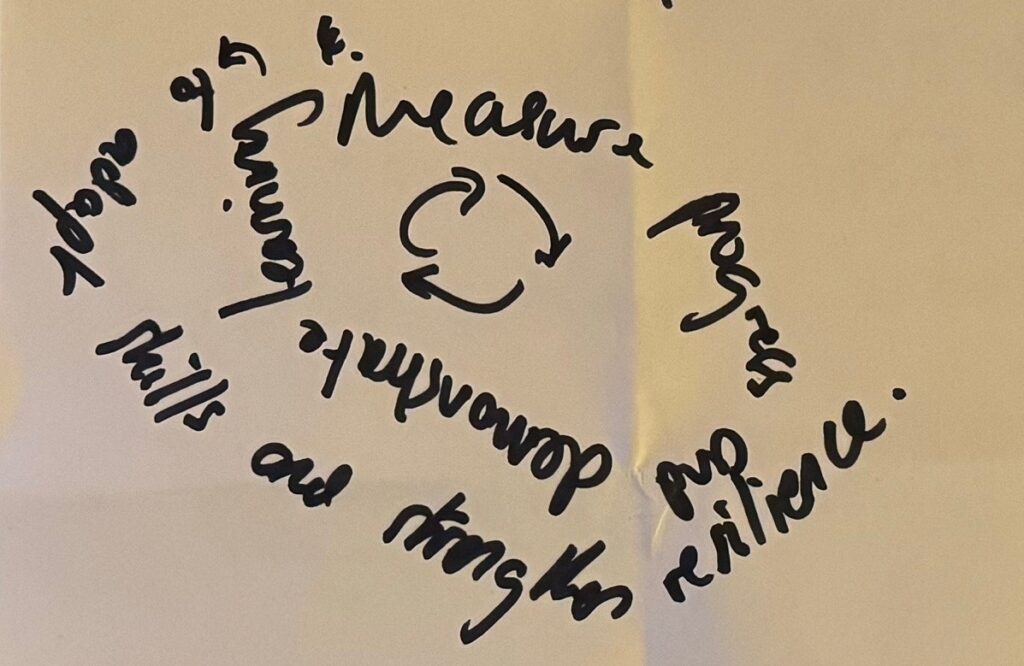 Measure
progress
and
demonstrate
learning
adapt
skills
and
strengths
resilience.